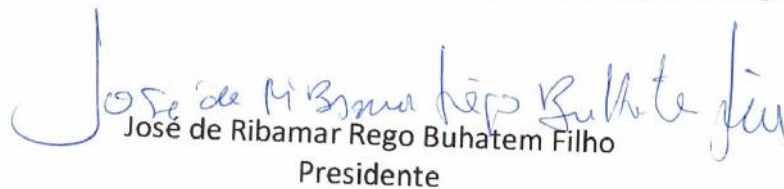 José de Ribamar Rego Buhatem Filho
José de Ribamar Rego Buhatem Filho
Presidente